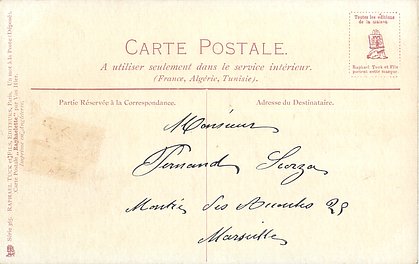 CARTE POSTALE.
A utiliser seulement dans le service intérieur.
(France, Algérie, Tunisie).
Toutes les éditions
de la maison
Raphael Tuck et Fils
portent cette marque
Partie Réservée à la Correspondance.
Adresse du Destinataire.
Monsieur
Fernand
Montée des Accoules 25
Marseille
Série 365. RAPHAEL TUCK ET FILS, EDITEURS, PARIS. Un mot à la Poste (Déposé).
Carte Postale „Raphaelette"